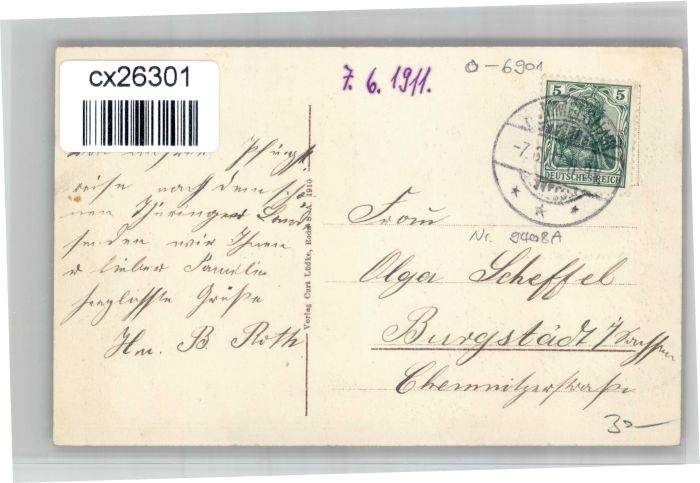 cx26301
7. 6. 1911.
O-6901
5 5
DEUTSCHES REICH
-7.6
Pfingst
reise nach dem schö
nen Thüringer Land
senden wir Ihnen
u lieber Familie
herzlichste Grüße
Hm. B Roth
Verlag Curt Lüdke, 1910
Frau
Nr. 9408A
Olga Scheffel
Burgstädt i/Sachsen
Chemnitzerstraße
30-